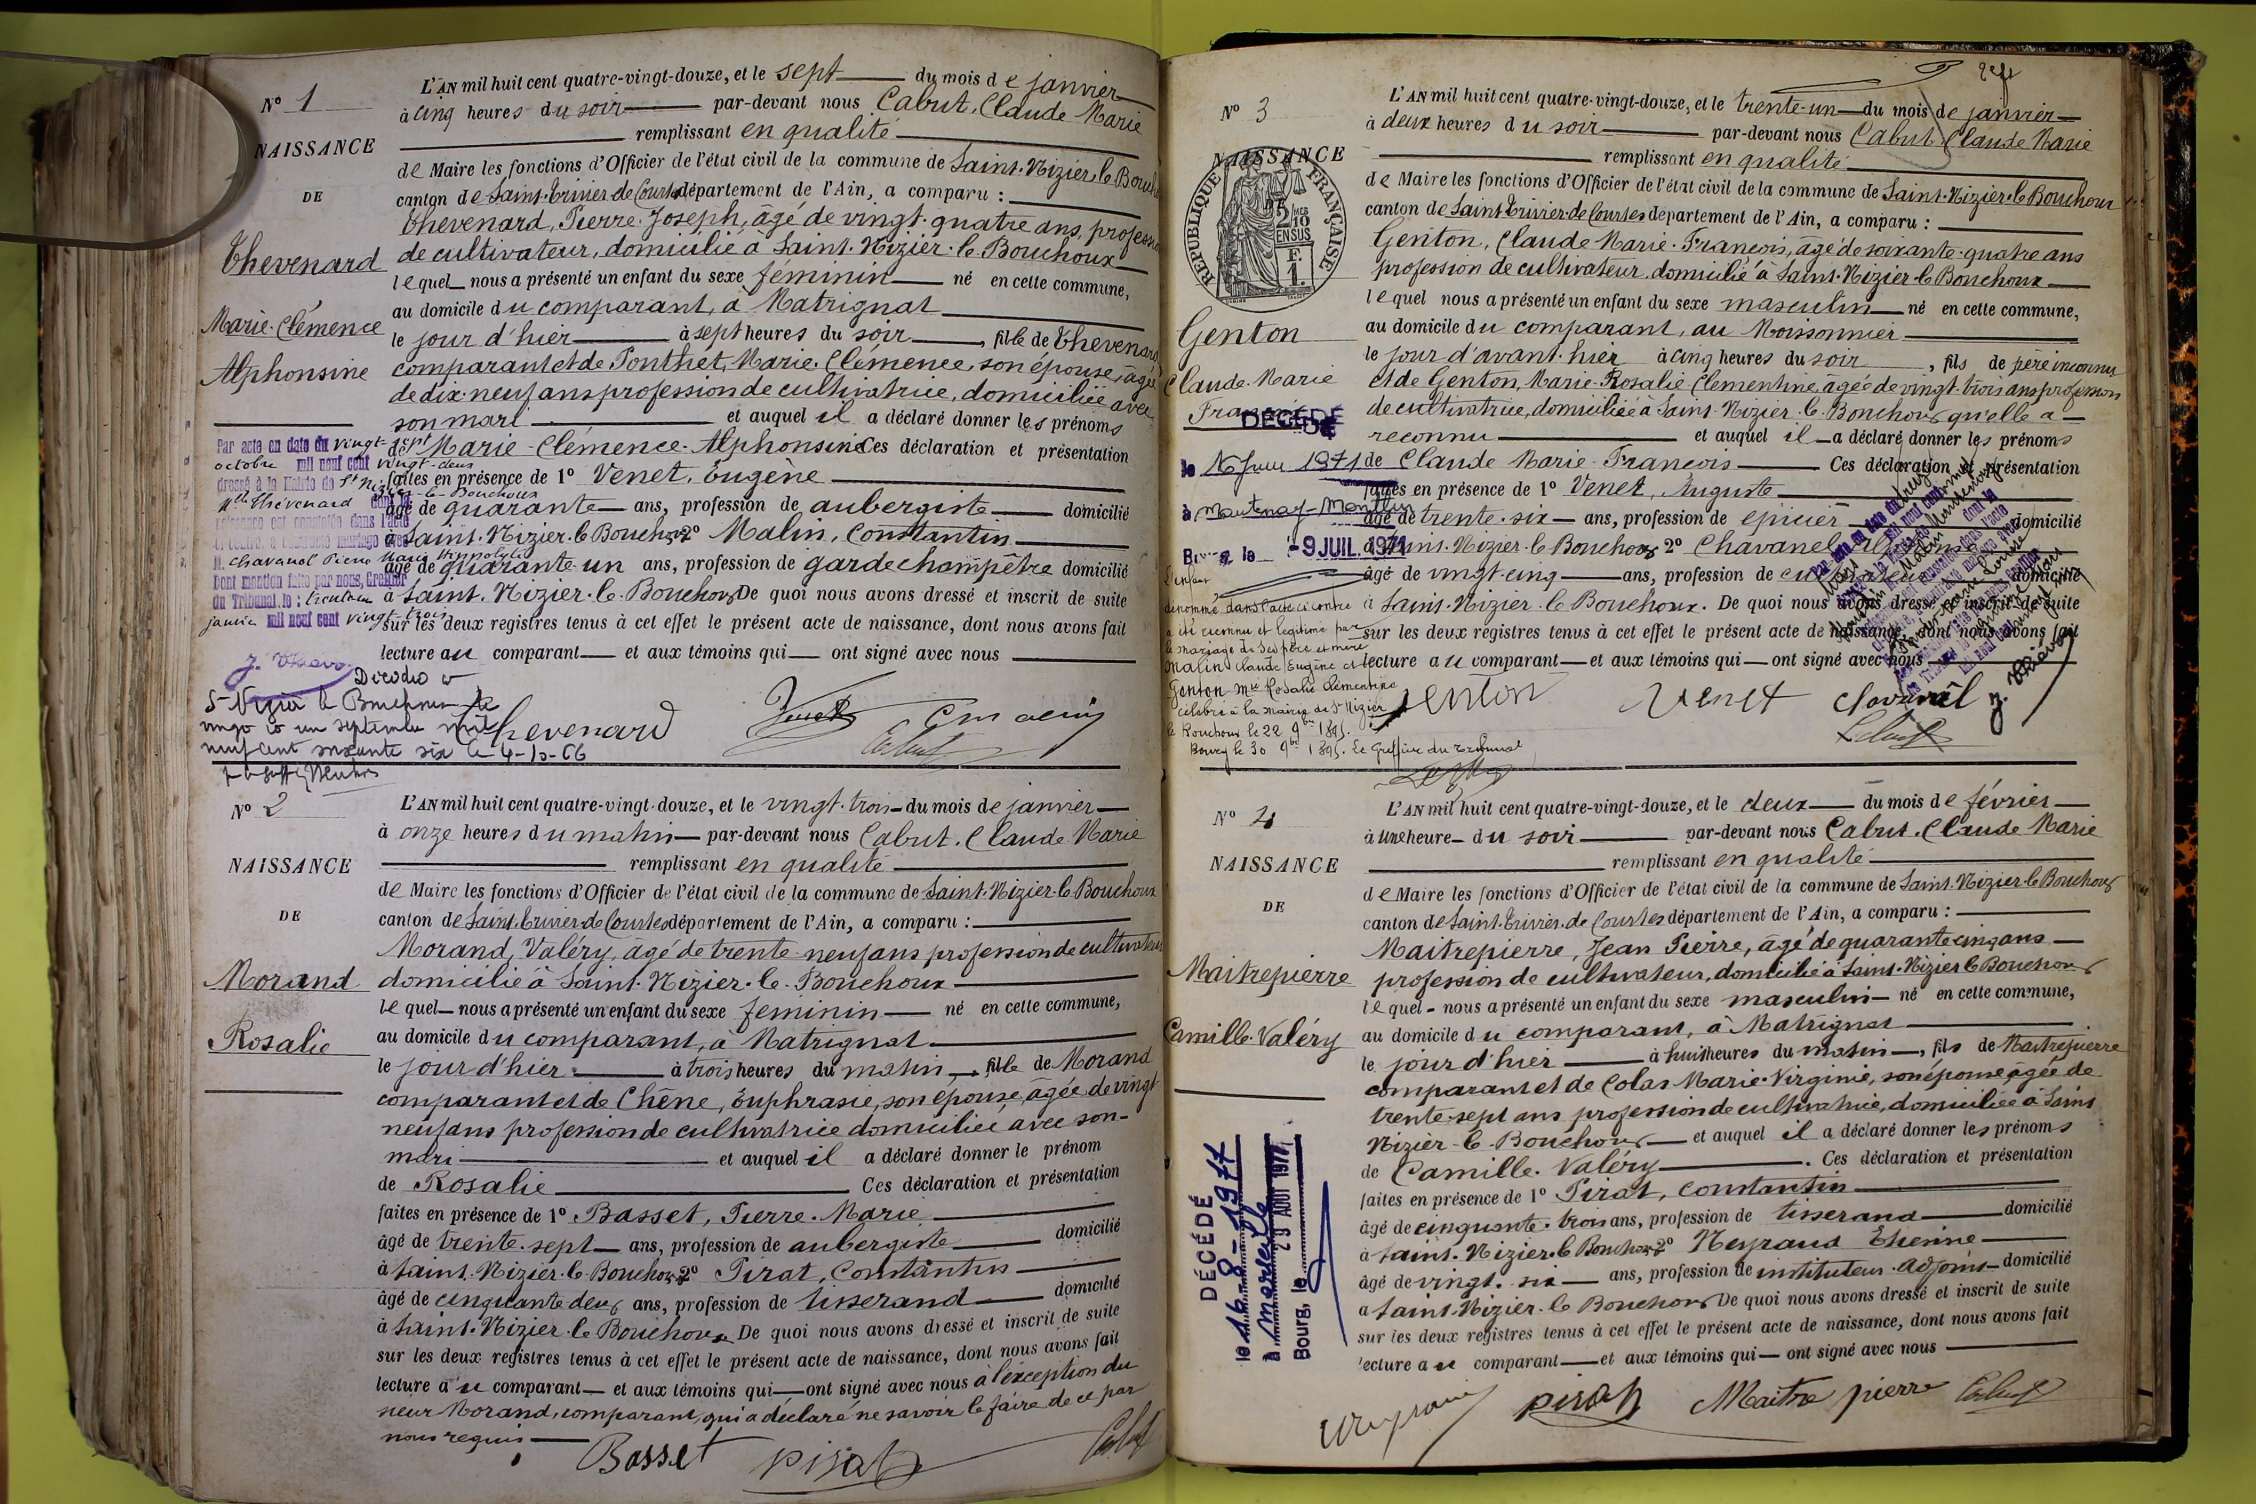 N° 1
NAISSANCE
DE
Thevenard
Marie-Clémence
Alphonsine
L'AN mil huit cent quatre-vingt-douze, et le sept du mois de janvier
à cinq heures du soir par-devant nous Cabut, Claude Marie
remplissant en qualité
de Maire les fonctions d'Officier de l'état civil de la commune de Saint-Nizier-le-Bouchoux
canton de Saint-Trivier-de-Courtes département de l'Ain, a comparu :
Thevenard, Pierre-Joseph, âgé de vingt-quatre ans, profession
de cultivateur, domicilié à Saint-Nizier-le-Bouchoux
lequel nous a présenté un enfant du sexe féminin né en cette commune,
au domicile du comparant, à Matrignat
le jour d'hier à sept heures du soir, fille de Thevenard
comparant et de Ponthet, Marie-Clémence, son épouse, âgée
de dix-neuf ans profession de cultivatrice, domiciliée avec
son mari et auquel il a déclaré donner les prénoms
de Marie-Clémence-Alphonsine Ces déclaration et présentation
faites en présence de 1° Venet, Eugène
âgé de quarante ans, profession de aubergiste domicilié
à Saint-Nizier-le-Bouchoux 2° Malin, Constantin
âgé de quarante-un ans, profession de garde champêtre domicilié
à Saint-Nizier-le-Bouchoux De quoi nous avons dressé et inscrit de suite
sur les deux registres tenus à cet effet le présent acte de naissance, dont nous avons fait
lecture au comparant et aux témoins qui ont signé avec nous
Par acte en date du vingt-sept
octobre mil neuf cent vingt-deux
dressé à la Mairie de St Nizier-le-Bouchoux
Mlle Thévenard dont la
naissance est constatée dans l'acte
ci-contre, a contracté mariage avec
M. Chavanel Pierre Marie Hippolyte
Dont mention faite par nous, Greffier
du Tribunal, le : trente un
janvier mil neuf cent vingt-trois
Décédée à
St Nizier le Bouchoux le
vingt et un septembre mil
neuf cent soixante six le 4-10-66
Thevenard Venet C malin
Cabut
N° 2
NAISSANCE
DE
Morand
Rosalie
L'AN mil huit cent quatre-vingt-douze, et le vingt-trois du mois de janvier
à onze heures du matin par-devant nous Cabut, Claude Marie
remplissant en qualité
de Maire les fonctions d'Officier de l'état civil de la commune de Saint-Nizier-le-Bouchoux
canton de Saint-Trivier-de-Courtes département de l'Ain, a comparu :
Morand, Valéry, âgé de trente-neuf ans profession de cultivateur
domicilié à Saint-Nizier-le-Bouchoux
lequel nous a présenté un enfant du sexe féminin né en cette commune,
au domicile du comparant, à Matrignat
le jour d'hier à trois heures du matin, fille de Morand
comparant et de Chêne, Euphrasie, son épouse, âgée de vingt
neuf ans profession de cultivatrice domiciliée avec son
mari et auquel il a déclaré donner le prénom
de Rosalie Ces déclaration et présentation
faites en présence de 1° Basset, Pierre-Marie
âgé de trente-sept ans, profession de aubergiste domicilié
à Saint-Nizier-le-Bouchoux 2° Pirat, Constantin
âgé de cinquante deux ans, profession de tisserand domicilié
à Saint-Nizier-le-Bouchoux De quoi nous avons dressé et inscrit de suite
sur les deux registres tenus à cet effet le présent acte de naissance, dont nous avons fait
lecture au comparant et aux témoins qui ont signé avec nous à l'exception du
sieur Morand, comparant, qui a déclaré ne savoir le faire de ce par
nous requis
Basset pirat Cabut
N° 3
NAISSANCE
RÉPUBLIQUE FRANÇAISE
2/10 EN SUS
Genton
Claude-Marie
François
L'AN mil huit cent quatre-vingt-douze, et le trente-un du mois de janvier
à deux heures du soir par-devant nous Cabut Claude Marie
remplissant en qualité
de Maire les fonctions d'Officier de l'état civil de la commune de Saint-Nizier-le-Bouchoux
canton de Saint-Trivier-de-Courtes département de l'Ain, a comparu :
Genton, Claude Marie-François, âgé de soixante-quatre ans
profession de cultivateur, domicilié à Saint-Nizier-le-Bouchoux
lequel nous a présenté un enfant du sexe masculin né en cette commune,
au domicile du comparant, au Moissonnier
le jour d'avant-hier à cinq heures du soir, fils de père inconnu
et de Genton, Marie-Rosalie Clementine, âgée de vingt-trois ans profession
de cultivatrice, domiciliée à Saint-Nizier-le-Bouchoux qu'elle a
reconnu et auquel il a déclaré donner les prénoms
de Claude Marie-François Ces déclaration et présentation
faites en présence de 1° Venet, Auguste
âgé de trente-six ans, profession de épicier domicilié
à Saint-Nizier-le-Bouchoux 2° Chavanel
âgé de vingt-cinq ans, profession de cultivateur domicilié
à Saint-Nizier-le-Bouchoux. De quoi nous avons dressé et inscrit de suite
sur les deux registres tenus à cet effet le présent acte de naissance, dont nous avons fait
lecture au comparant et aux témoins qui ont signé avec nous
DÉCÉDÉ
le 16 Juin 1971
à Mantenay-Montlin
Bourg, le -9 JUIL. 1971
L'enfant
dénommé dans l'acte ci contre
a été reconnu et légitimé par
le mariage de ses père et mère
Malin Claude Eugène et
Genton Mie Rosalie Clementine
célébré à la mairie de St Nizier
le Bouchoux le 22 9bre 1895.
Bourg le 30 9bre 1895. Le Greffier du tribunal
Genton Venet Chavanel
Cabut
N° 4
NAISSANCE
DE
Maitrepierre
Camille-Valéry
L'AN mil huit cent quatre-vingt-douze, et le deux du mois de février
à une heure du soir par-devant nous Cabut, Claude Marie
remplissant en qualité
de Maire les fonctions d'Officier de l'état civil de la commune de Saint-Nizier-le-Bouchoux
canton de Saint-Trivier-de-Courtes département de l'Ain, a comparu :
Maitrepierre, Jean Pierre, âgé de quarante cinq ans
profession de cultivateur, domicilié à Saint-Nizier-le-Bouchoux
lequel nous a présenté un enfant du sexe masculin né en cette commune,
au domicile du comparant, à Matrignat
le jour d'hier à huit heures du matin, fils de Maitrepierre
comparant et de Colas Marie-Virginie, son épouse âgée de
trente-sept ans profession de cultivatrice, domiciliée à Saint
Nizier-le-Bouchoux et auquel il a déclaré donner les prénoms
de Camille-Valéry. Ces déclaration et présentation
faites en présence de 1° Pirat, Constantin
âgé de cinquante-trois ans, profession de tisserand domicilié
à Saint-Nizier-le-Bouchoux 2° Neyraud Etienne
âgé de vingt-six ans, profession de instituteur-adjoint domicilié
à Saint-Nizier-le-Bouchoux De quoi nous avons dressé et inscrit de suite
sur les deux registres tenus à cet effet le présent acte de naissance, dont nous avons fait
lecture au comparant et aux témoins qui ont signé avec nous
DÉCÉDÉ
le 16-8-1977
à Marseille
Bourg, le 29 AOUT 1977
Neyraud pirat Maitrepierre Cabut